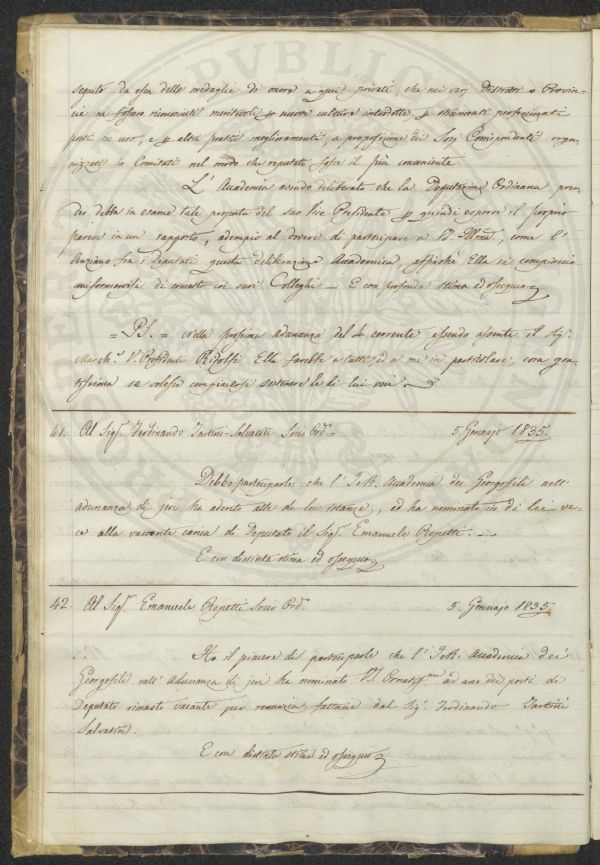 PVBLICA
seguito da essa delle medaglie di onore a quei privati, che nei varj Distretti o Provin-
cie ne fossero riconosciuti meritevoli p nuove culture introdotte p strumenti perfezionati
posti in uso, e p altri pratici miglioramenti, a proposizione dei Socj Corrispondenti orga-
nizzati in Comitati nel modo che reputato fosse il più conveniente.
L' Accademia avendo deliberato che la Deputazione Ordinaria pren-
der debba in esame tale proposta del suo Vice-Presidente p quindi esporre il proprio
parere in un rapporto, adempio al dovere di partecipare a V.S. Illma, come l'
Anziano fra i Deputati questa deliberazione Accademica, affinchè Ella si compiaccia
uniformarvisi di concerto coi suoi Colleghi — E con profonda stima ed ossequio
= P.S. = Nella prossima adunanza del 4 corrente essendo assente il Sig.r
March.e V. Presidente Ridolfi Ella farebbe a tutti ed a me in particolare, cosa gra-
tissima se volesse compiacersi sostenere le di lui veci
41. Al Sig.r Ferdinando Tartini-Salvatici Socio Ord.o = 5. Gennajo 1835.
Debbo parteciparle che l' I. e R. Accademia dei Georgofili nell'
adunanza di jeri ha aderito alle di lei istanze, ed ha nominato in di lei ve-
ce alla vacante carica di Deputato il Sig.r Emanuele Repetti. —
E con distinta stima ed ossequio
42. Al Sig.r Emanuele Repetti Socio Ord.o 5. Gennajo 1835.
Ho il piacere di parteciparle che l' I. e R. Accademia dei
Georgofili nell' Adunanza di jeri ha nominato V.S. Ornatiss.ma ad uno dei posti di
Deputato rimasto vacante per renunzia fattane dal Sig.r Ferdinando Tartini
Salvatici.
E con distinta stima ed ossequio